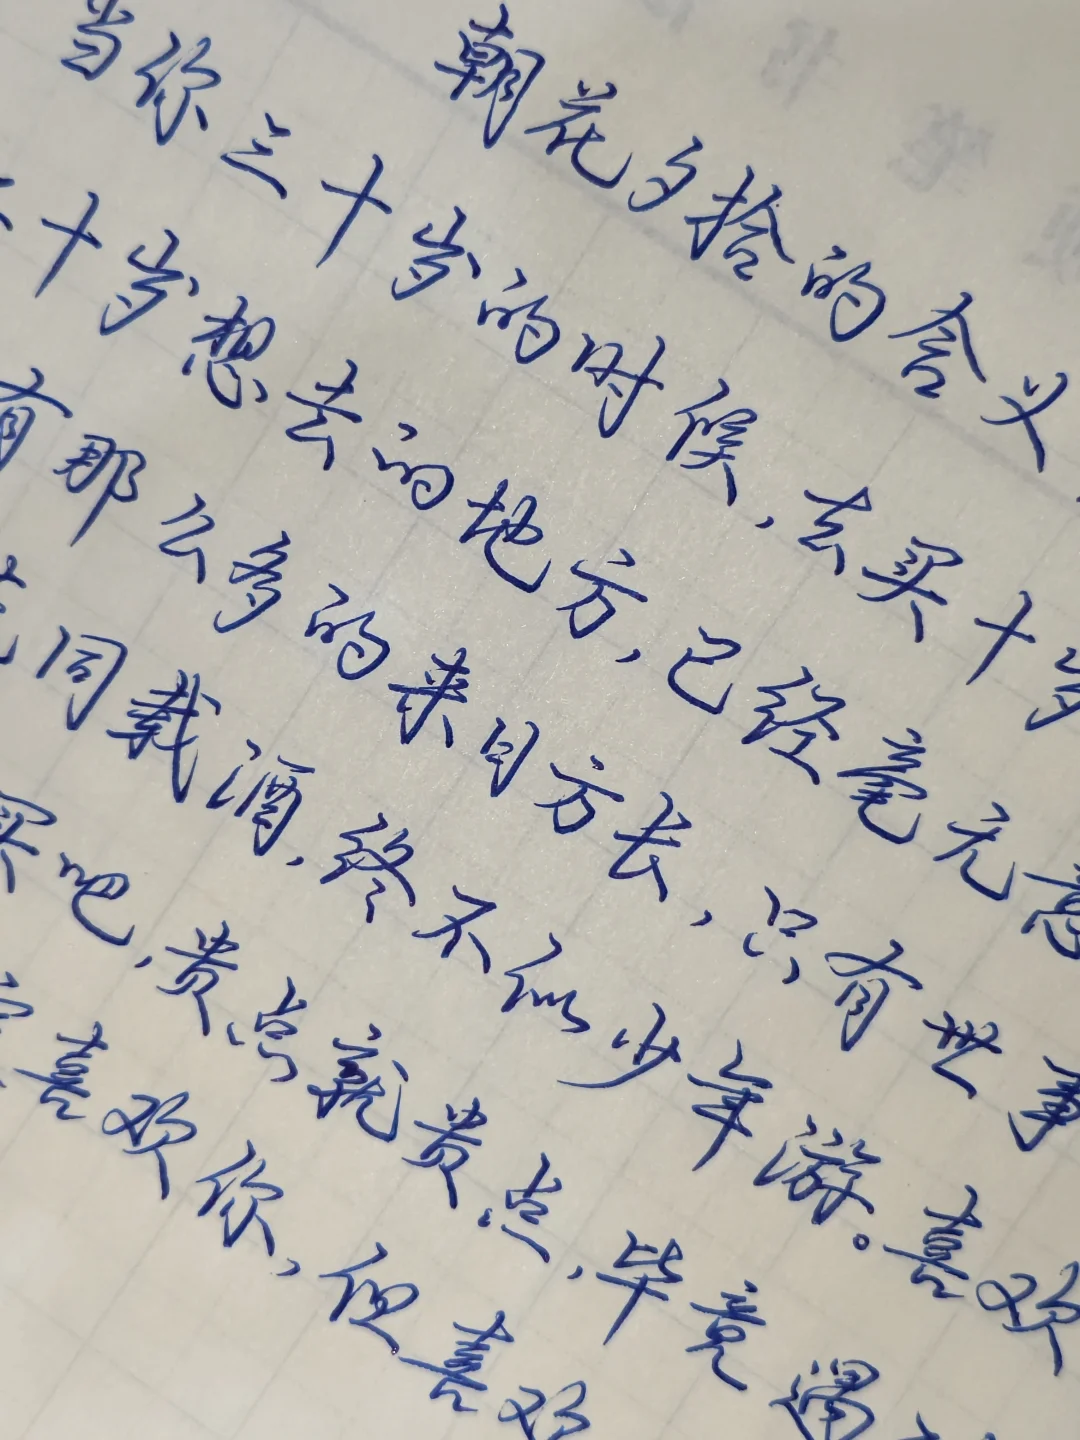 朝花夕拾的含义
当你三十岁的时候，去买十岁
十岁想去的地方，已经毫无意
有那么多的来日方长，只有世事
同载酒，终不似少年游。喜欢
买吧，贵点就贵点，毕竟遇
喜欢你，但喜欢